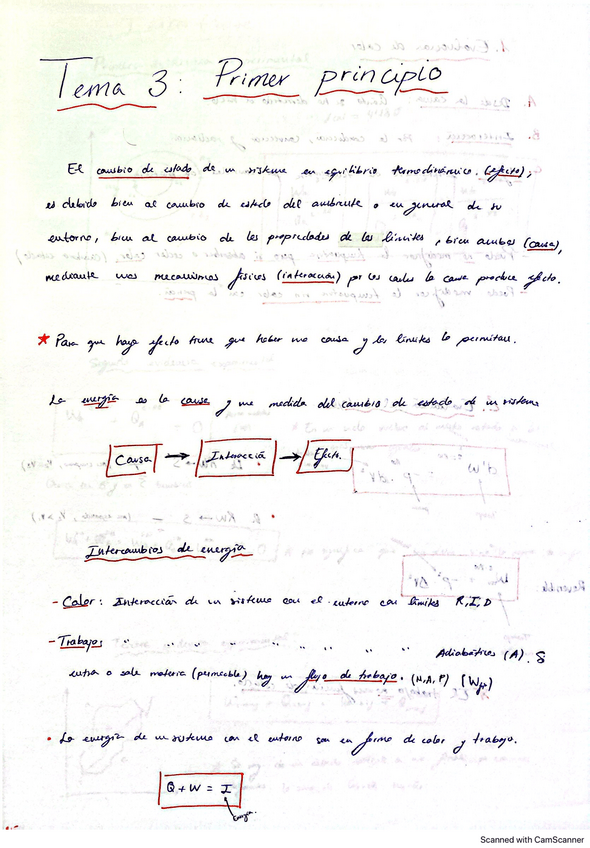 Tema 3: Primer principio
El cambio de estado de un sistema en equilibrio termodinámico (efecto),
es debido bien al cambio de estado del ambiente o en general de su
entorno, bien al cambio de las propiedades de los límites, bien ambas (causa),
mediante unos mecanismos físicos (interacción) por los cuales la causa produce efecto.
* Para que haya efecto tiene que haber una causa y los límites lo permitan.
La energía es la causa y una medida del cambio de estado de un sistema
Causa → Interacción → Efecto.
Intercambios de energía
- Calor: Interacción de un sistema con el entorno con límites R, I, D
- Trabajo: " " " " " " " " Adiabáticos (A). Si
entra o sale materia (permeable) hay un flujo de trabajo. (M, A, P)
• La energía de un sistema con el entorno son en forma de calor y trabajo.
Q + W = I
Energía
Scanned with CamScanner